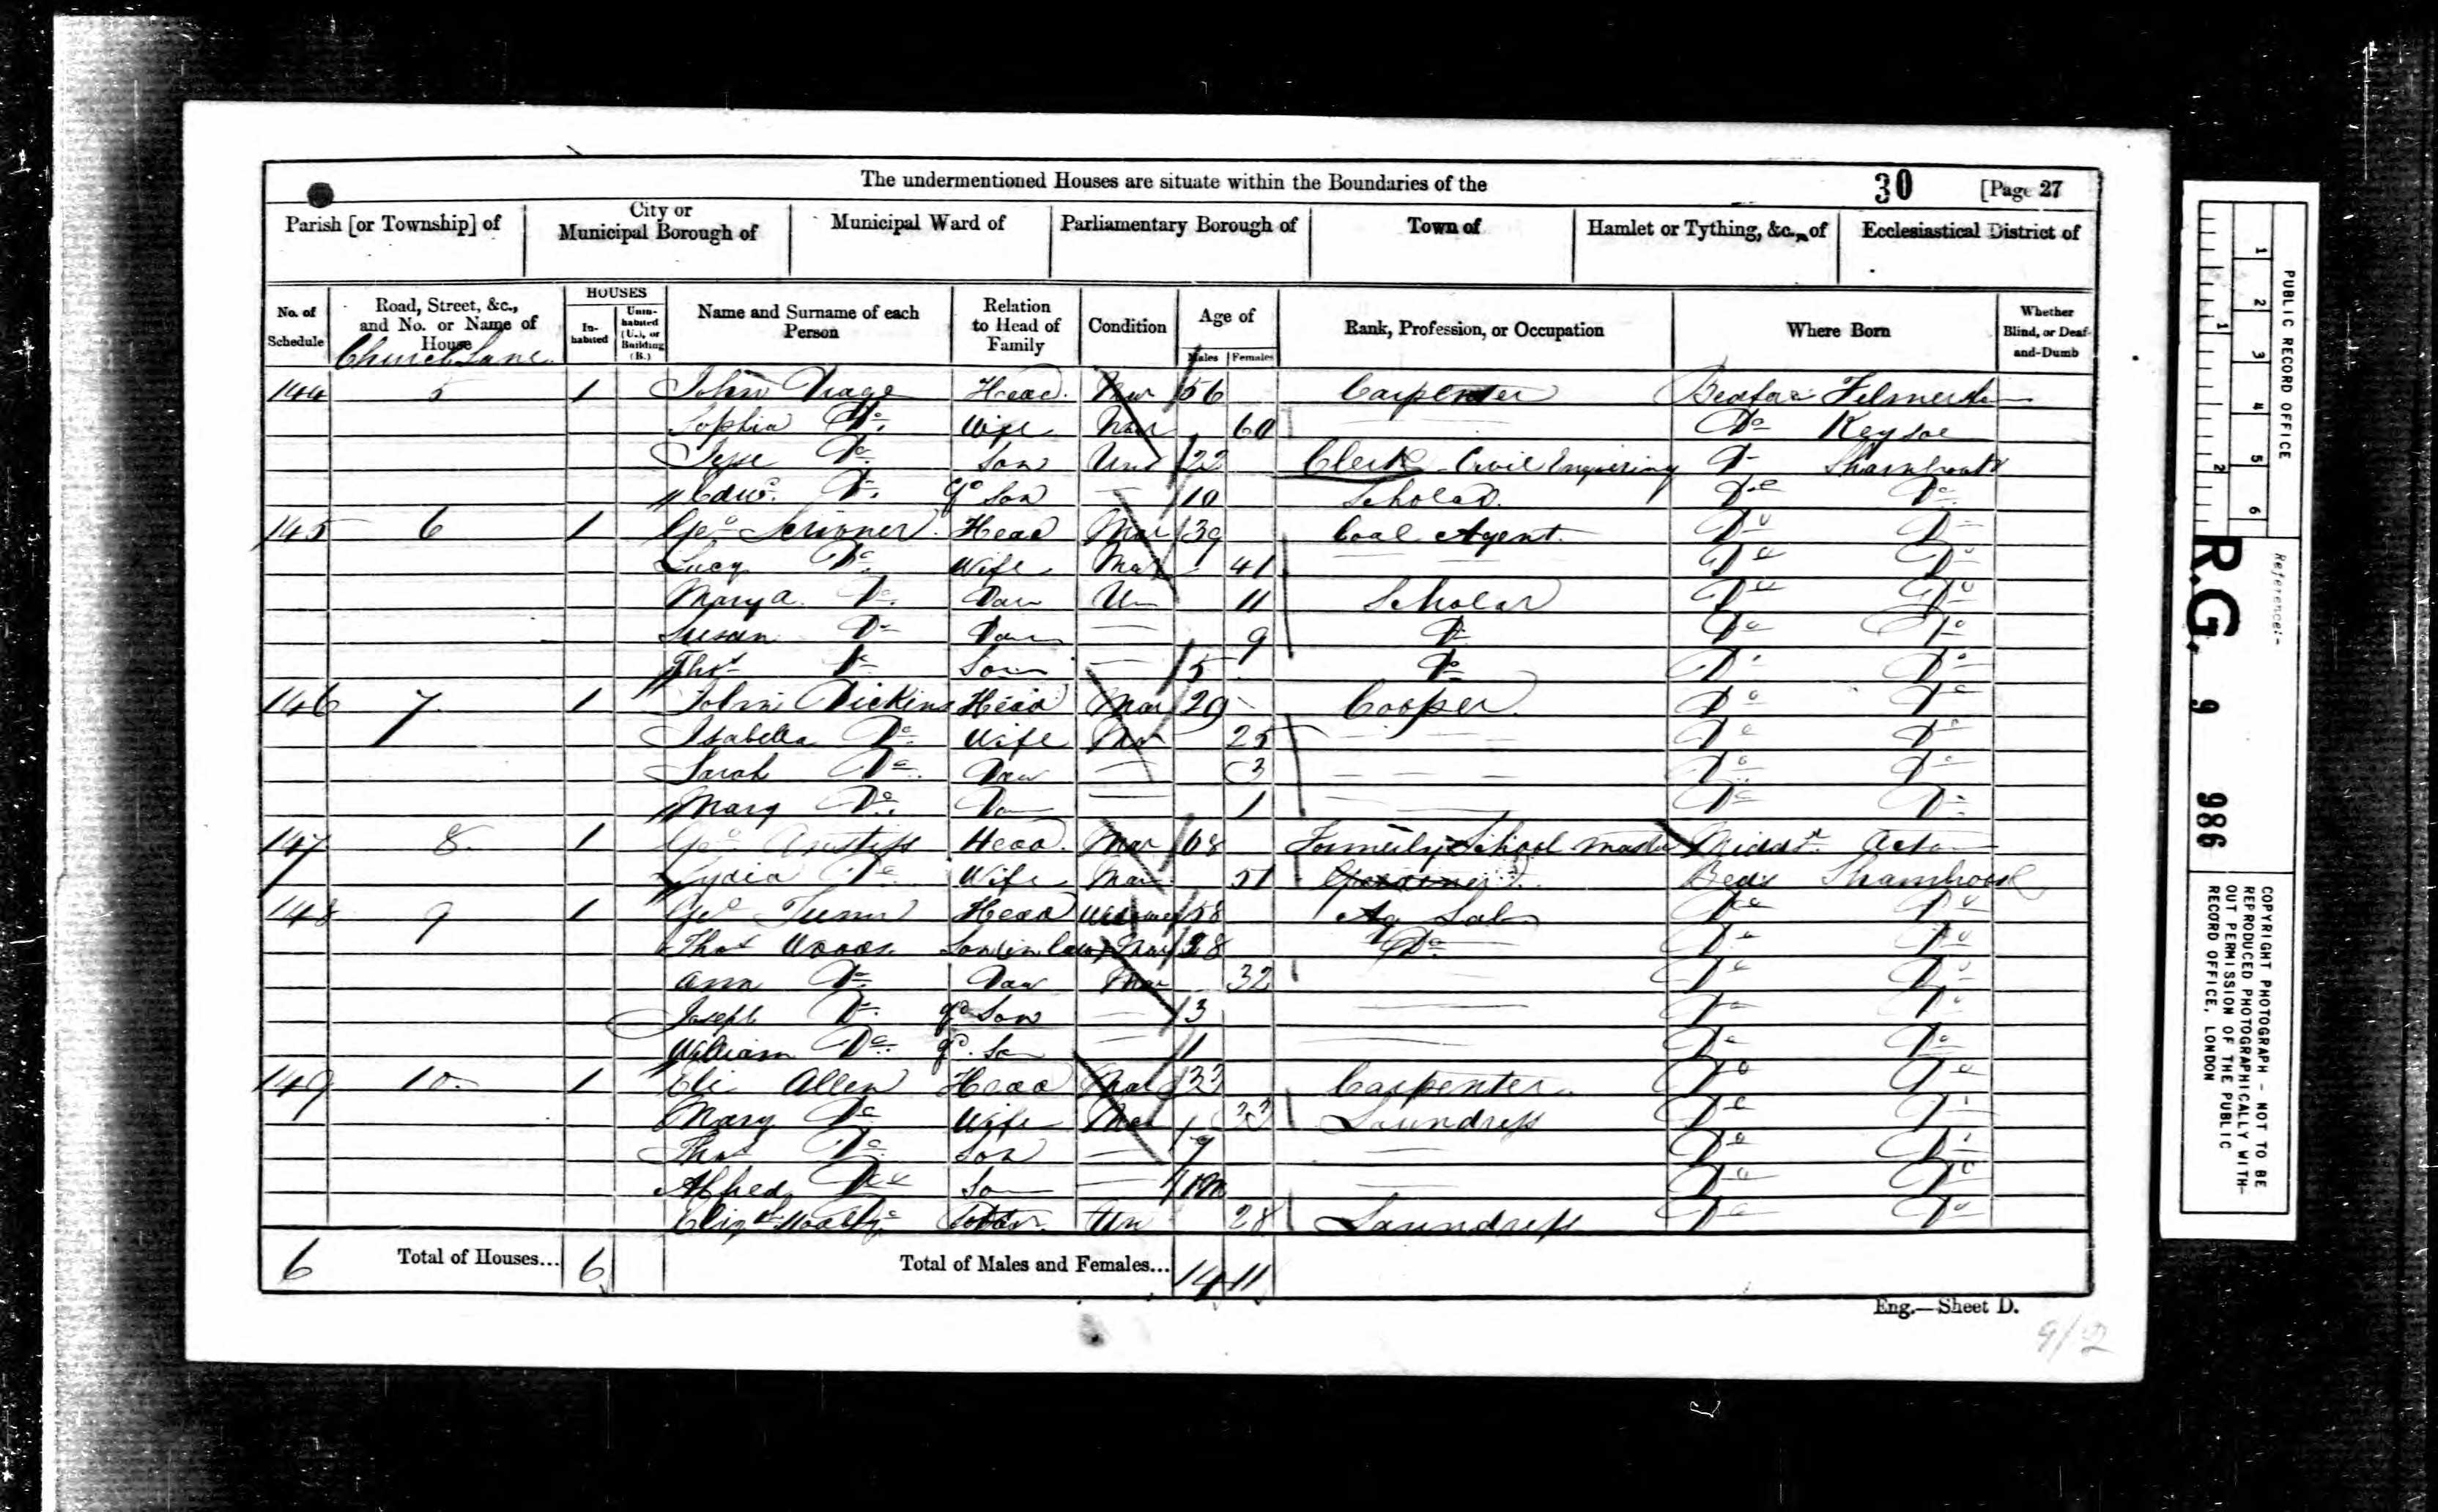 The undermentioned Houses are situate within the Boundaries of the 30 [Page 27
Parish [or Township] of City or Municipal Borough of Municipal Ward of Parliamentary Borough of Town of Hamlet or Tything, &c., of Ecclesiastical District of
No. of Schedule Road, Street, &c., and No. or Name of House HOUSES Inhabited Uninhabited (U.), or Building (B.) Name and Surname of each Person Relation to Head of Family Condition Age of Males Females Rank, Profession, or Occupation Where Born Whether Blind, or Deaf-and-Dumb
Church Lane
144 5 1 John Head Mar 56 Carpenter
Sophia Do Wife Mar 60 Do Keysoe
Do Son Un 22 Clerk Civil Do
Edwd. Do Gd Son — 10 Scholar Do Do
145 6 1 Geo Head Mar 39 Coal Agent Do Do
Lucy Do Wife Mar 41 Do Do
Mary A. Do Daur Un 11 Scholar Do Do
Susan Do Daur — 9 Do Do Do
Thos Do Son — 5 Do Do Do
146 7 1 John Dickins Head Mar 29 Cooper Do Do
Isabella Do Wife Mar 25 Do Do
Sarah Do Daur — 3 Do Do
Mary Do Daur — 1 Do Do
147 8 1 Geo Anstiss Head Mar 68 Formerly School Master Middsx. Acton
Lydia Do Wife Mar 51 Beds
148 9 1 Geo Head Widower 58 Ag Lab Do Do
Thos Woods Son in law Mar 28 Do Do Do
Ann Do Daur Mar 32 Do Do
Joseph Do Gd Son — 3 Do Do
William Do Gd. Son — 1 Do Do
149 10 1 Eli Allen Head Mar 33 Carpenter Do Do
Mary Do Wife Mar 33 Laundress Do Do
Thos Do Son — 9 Do Do
Alfred Do Son — 10m Do Do
Un 28 Laundress Do Do
6 Total of Houses... 6 Total of Males and Females... 14 11
Eng.—Sheet D.
9/2
PUBLIC RECORD OFFICE
1 2 3 4 5 6
1 2
Reference:-
R.G. 9 986
COPYRIGHT PHOTOGRAPH – NOT TO BE
REPRODUCED PHOTOGRAPHICALLY WITH-
OUT PERMISSION OF THE PUBLIC
RECORD OFFICE, LONDON